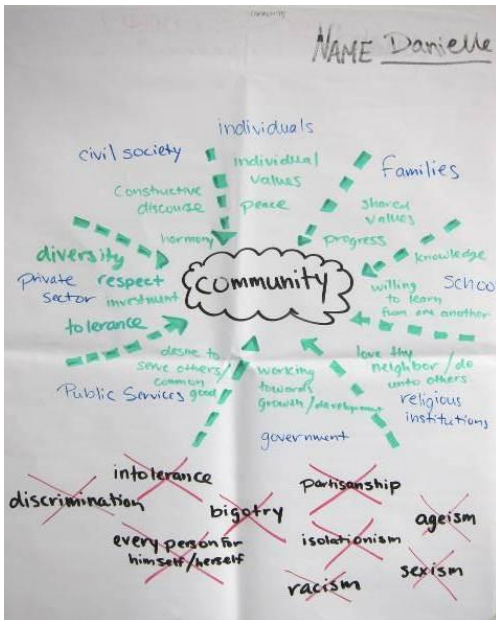 COMMUNITY
NAME Danielle
individuals
civil society
individual
values
families
Constructive
discourse
peace
shared
values
harmony
progress
knowledge
diversity
community
private
sector
respect
investment
willing
to learn
from one another
School
tolerance
desire to
serve others/
common
good
working
towards
growth/development
love thy
neighbor/do
unto others
Public Services
religious
institutions
government
intolerance
partisanship
discrimination
bigotry
ageism
every person for
himself/herself
isolationism
sexism
racism